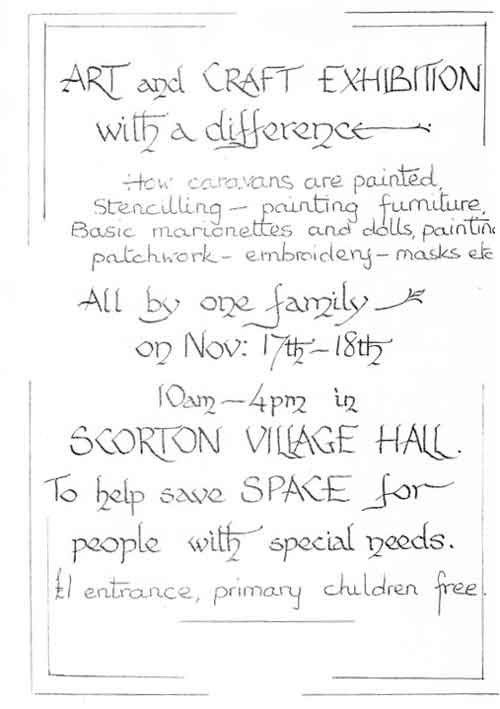 ART and CRAFT EXHIBITION
with a difference
How caravans are painted,
Stencilling – painting furniture,
Basic marionettes and dolls, painting
patchwork – embroidery – masks etc
All by one family
on Nov: 17th – 18th
10am – 4pm in
SCORTON VILLAGE HALL.
To help save SPACE for
people with special needs.
£1 entrance, primary children free.